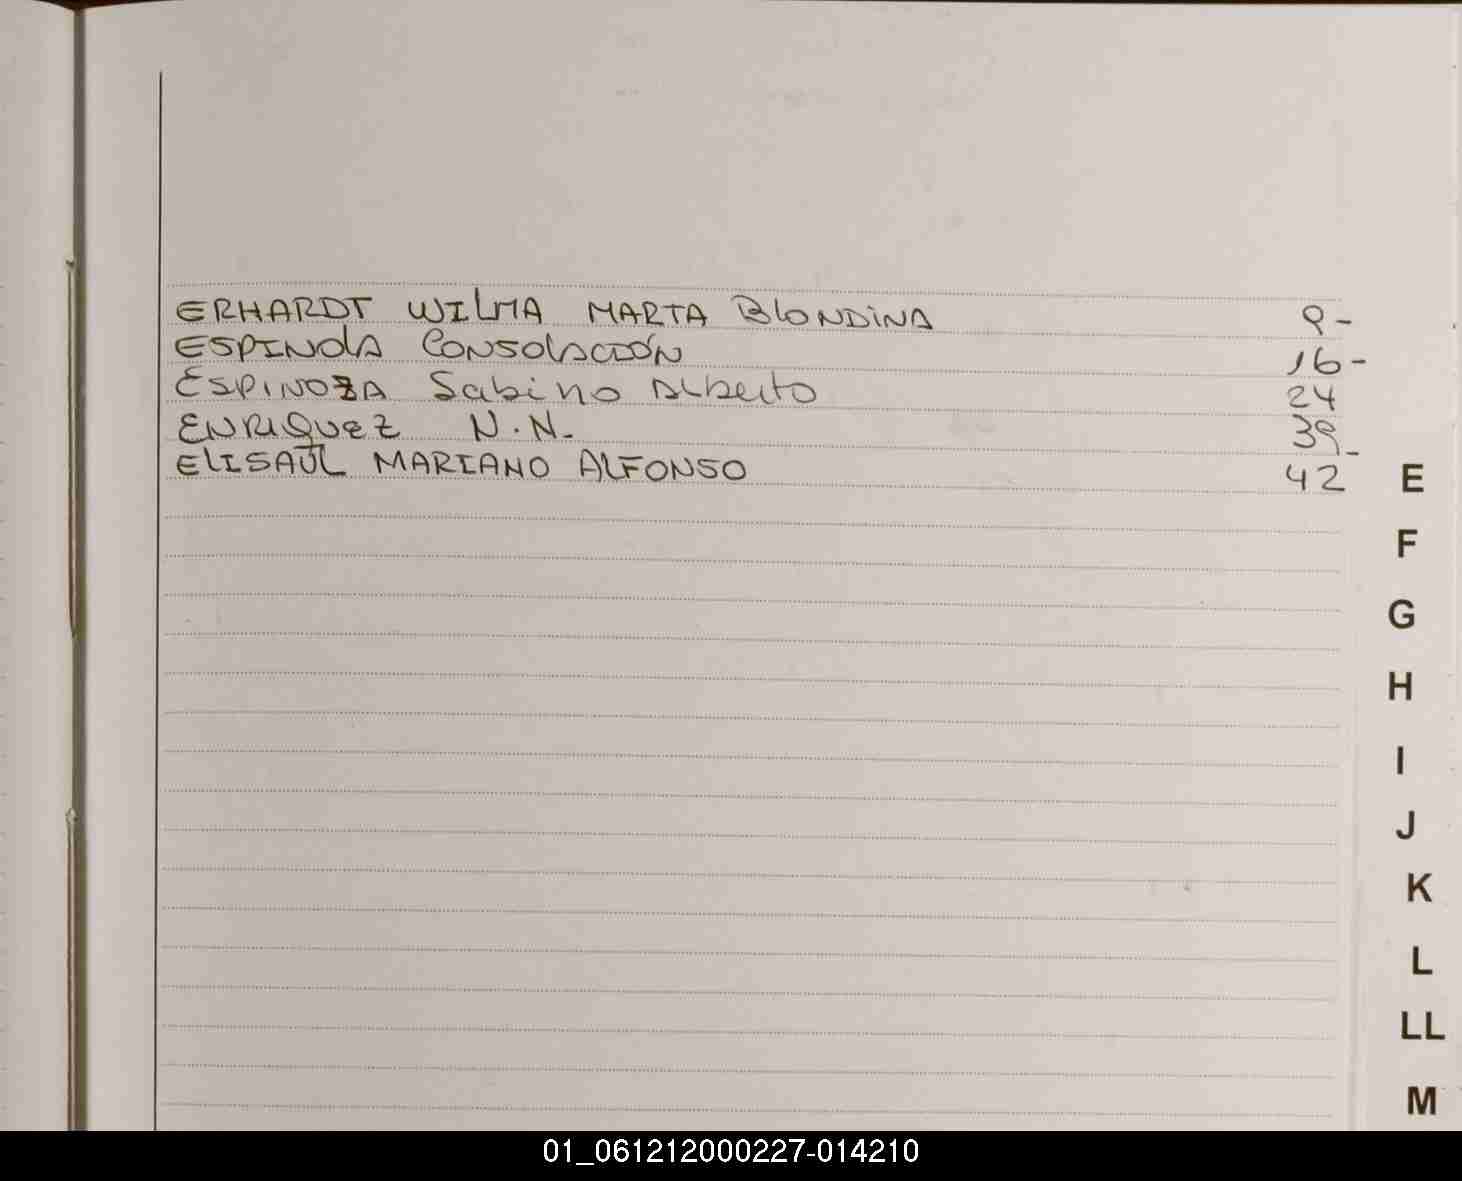 ERHARDT WILMA MARTA BLONDINA 9-
ESPINOLA CONSOLACIÓN 16-
ESPINOZA Sabino Alberto 24
ENRIQUEZ N.N. 39-
ELISAUL MARIANO ALFONSO 42
E
F
G
H
I
J
K
L
LL
M
01_061212000227-014210